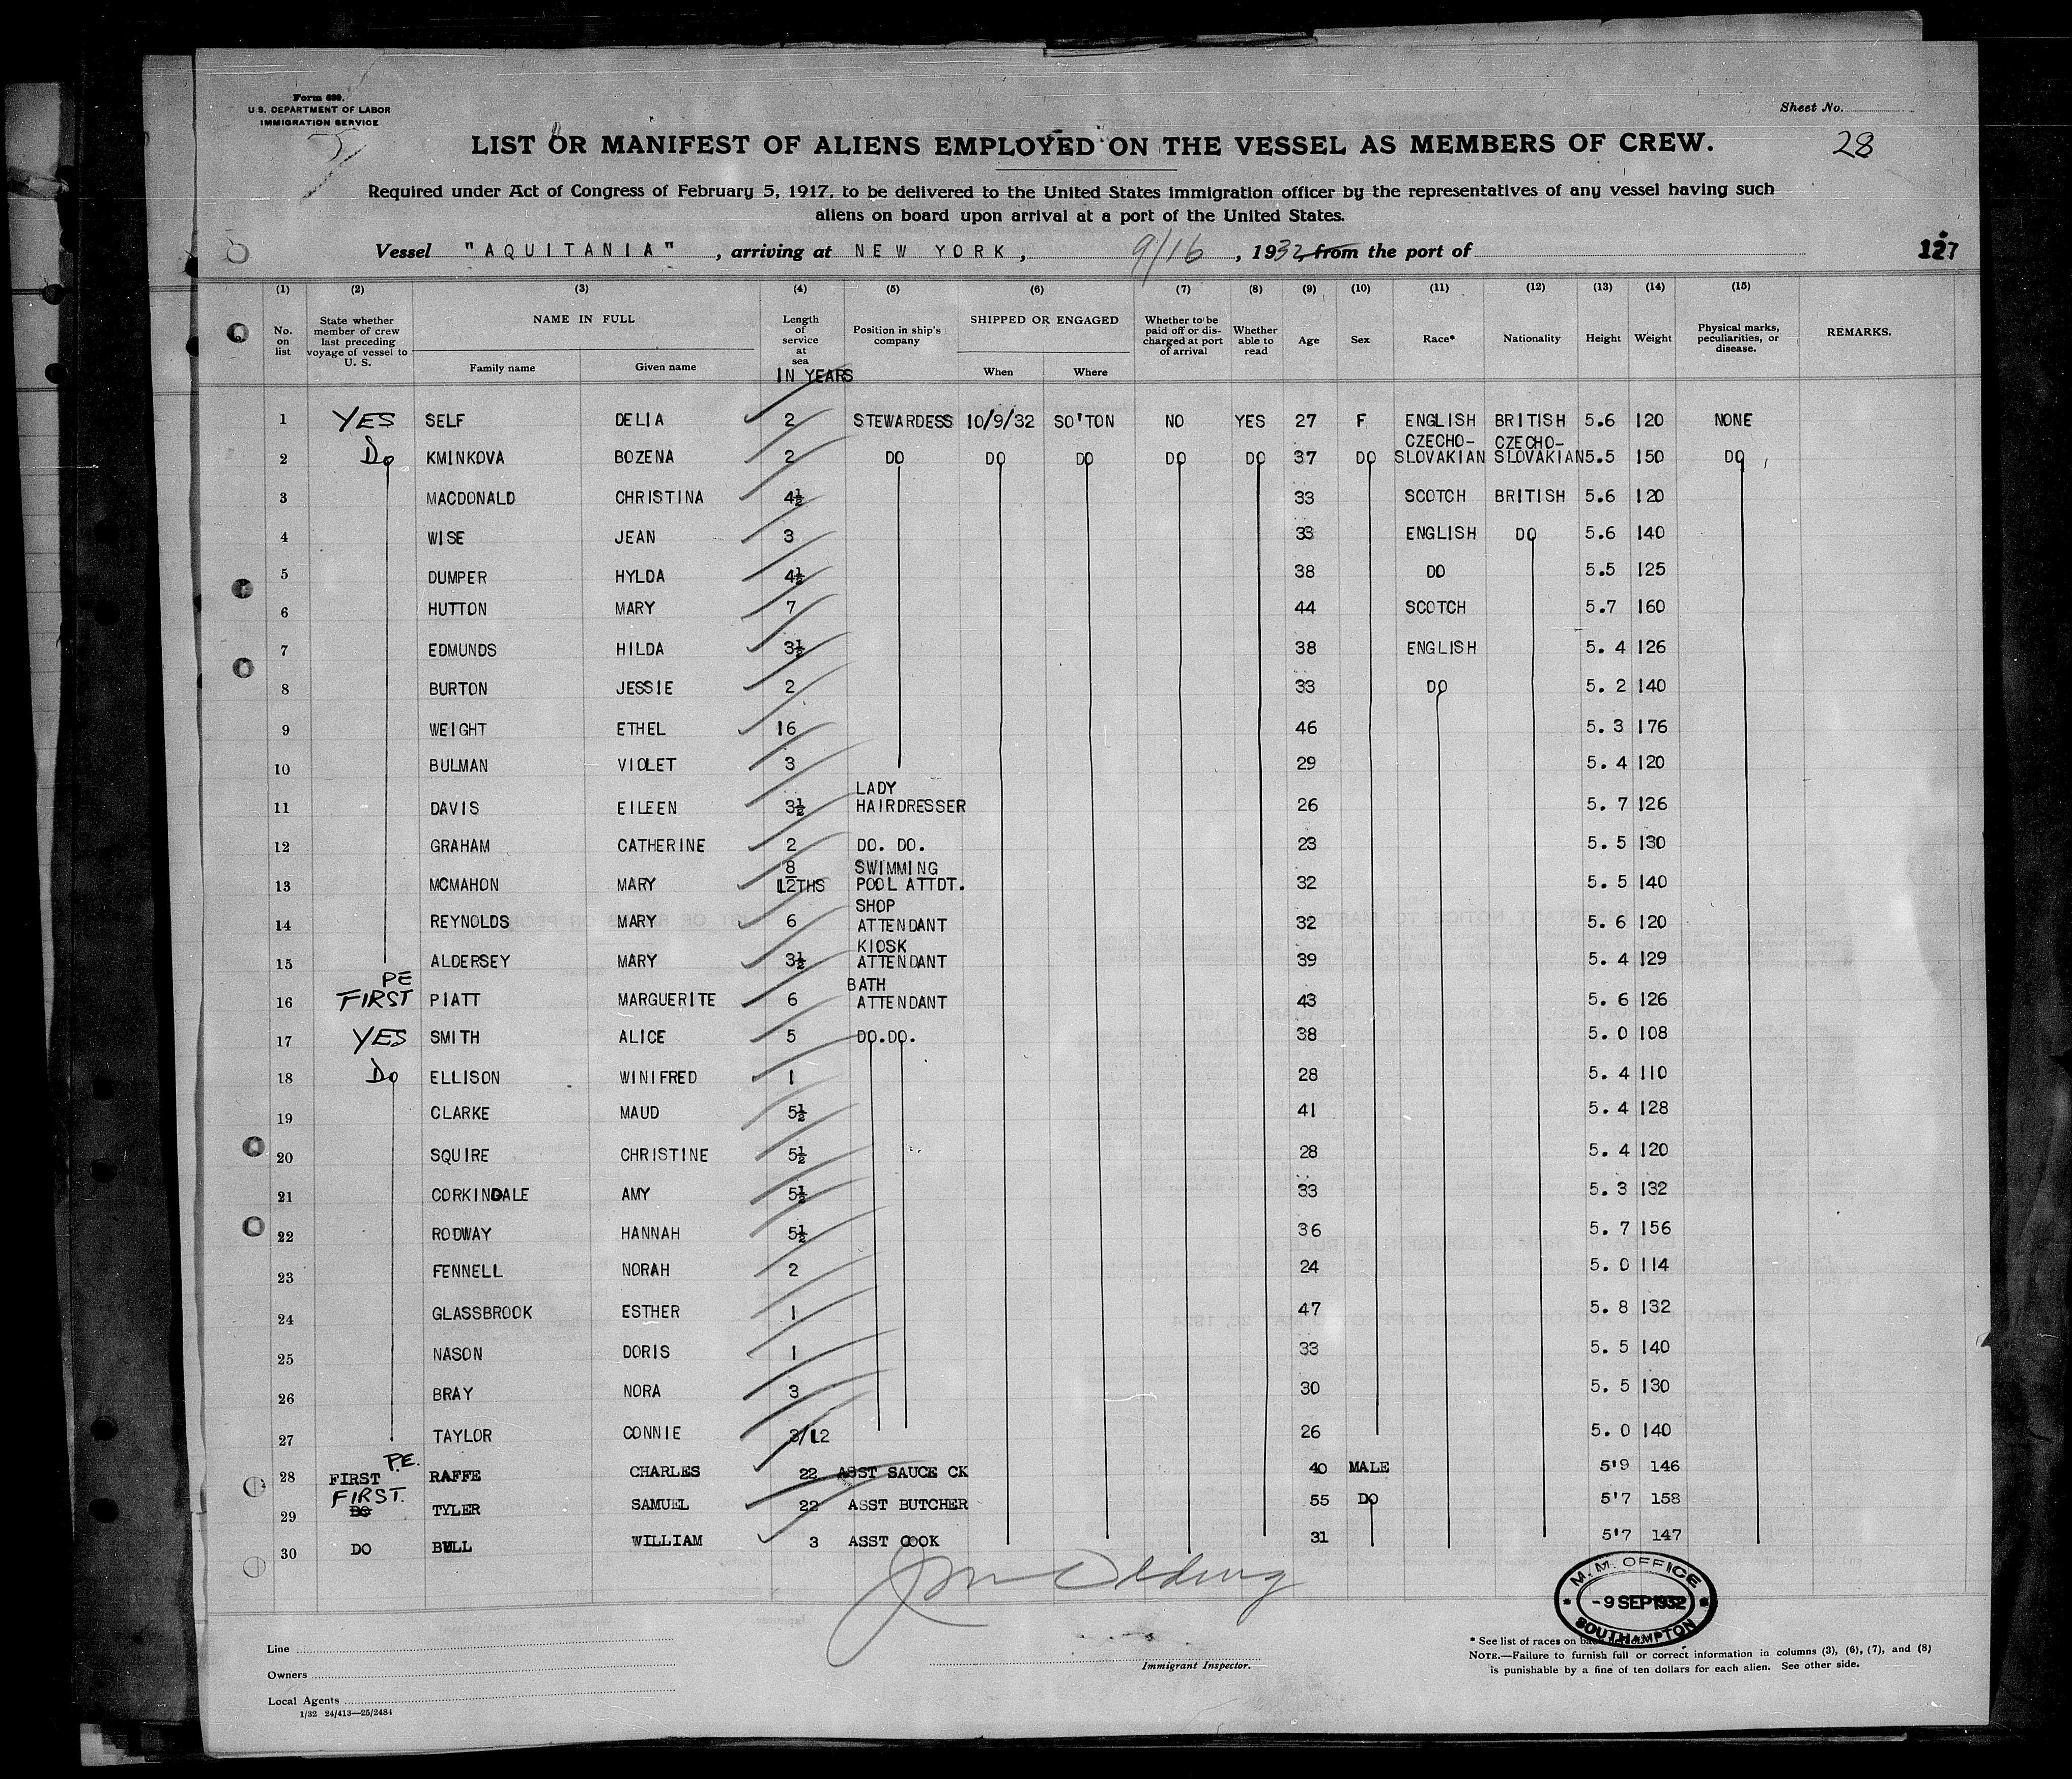 Form 680.
U.S. DEPARTMENT OF LABOR
IMMIGRATION SERVICE
Sheet No.
28
LIST OR MANIFEST OF ALIENS EMPLOYED ON THE VESSEL AS MEMBERS OF CREW.
Required under Act of Congress of February 5, 1917, to be delivered to the United States immigration officer by the representatives of any vessel having such
aliens on board upon arrival at a port of the United States.
Vessel "AQUITANIA", arriving at NEW YORK, 9/16, 1932, from the port of
127
(1) (2) (3) (4) (5) (6) (7) (8) (9) (10) (11) (12) (13) (14) (15)
No. on list
State whether member of crew last preceding voyage of vessel to U. S.
NAME IN FULL
Family name
Given name
Length of service at sea
IN YEARS
Position in ship's company
SHIPPED OR ENGAGED
When
Where
Whether to be paid off or discharged at port of arrival
Whether able to read
Age
Sex
Race*
Nationality
Height
Weight
Physical marks, peculiarities, or disease.
REMARKS.
1 YES SELF DELIA 2 STEWARDESS 10/9/32 SO'TON NO YES 27 F ENGLISH BRITISH 5.6 120 NONE
2 Do KMINKOVA BOZENA 2 DO DO DO DO DO 37 DO CZECHO-SLOVAKIAN CZECHO-SLOVAKIAN 5.5 150 DO
3 MACDONALD CHRISTINA 4½ 33 SCOTCH BRITISH 5.6 120
4 WISE JEAN 3 33 ENGLISH DO 5.6 140
5 DUMPER HYLDA 4½ 38 DO 5.5 125
6 HUTTON MARY 7 44 SCOTCH 5.7 160
7 EDMUNDS HILDA 3½ 38 ENGLISH 5. 4 126
8 BURTON JESSIE 2 33 DO 5. 2 140
9 WEIGHT ETHEL 16 46 5. 3 176
10 BULMAN VIOLET 3 29 5. 4 120
11 DAVIS EILEEN 3½ LADY HAIRDRESSER 26 5. 7 126
12 GRAHAM CATHERINE 2 DO. DO. 23 5. 5 130
13 MCMAHON MARY 8/12THS SWIMMING POOL ATTDT. 32 5. 5 140
14 REYNOLDS MARY 6 SHOP ATTENDANT 32 5. 6 120
15 ALDERSEY MARY 3½ KIOSK ATTENDANT 39 5. 4 129
16 PE FIRST PIATT MARGUERITE 6 BATH ATTENDANT 43 5. 6 126
17 YES SMITH ALICE 5 DO.DO. 38 5. 0 108
18 Do ELLISON WINIFRED 1 28 5. 4 110
19 CLARKE MAUD 5½ 41 5. 4 128
20 SQUIRE CHRISTINE 5½ 28 5. 4 120
21 CORKINDALE AMY 5½ 33 5. 3 132
22 RODWAY HANNAH 5½ 36 5. 7 156
23 FENNELL NORAH 2 24 5. 0 114
24 GLASSBROOK ESTHER 1 47 5. 8 132
25 NASON DORIS 1 33 5. 5 140
26 BRAY NORA 3 30 5. 5 130
27 TAYLOR CONNIE 3/12 26 5. 0 140
28 FIRST P.E. RAFFE CHARLES 22 ASST SAUCE CK 40 MALE 5'9 146
29 FIRST. DO TYLER SAMUEL 22 ASST BUTCHER 55 DO 5'7 158
30 DO BULL WILLIAM 3 ASST COOK 31 5'7 147
M. M. OFFICE
-9 SEP 1932
SOUTHAMPTON
Line
Owners
Local Agents
1/32 24/413—25/2484
Immigrant Inspector.
* See list of races on back
NOTE.—Failure to furnish full or correct information in columns (3), (6), (7), and (8)
is punishable by a fine of ten dollars for each alien. See other side.